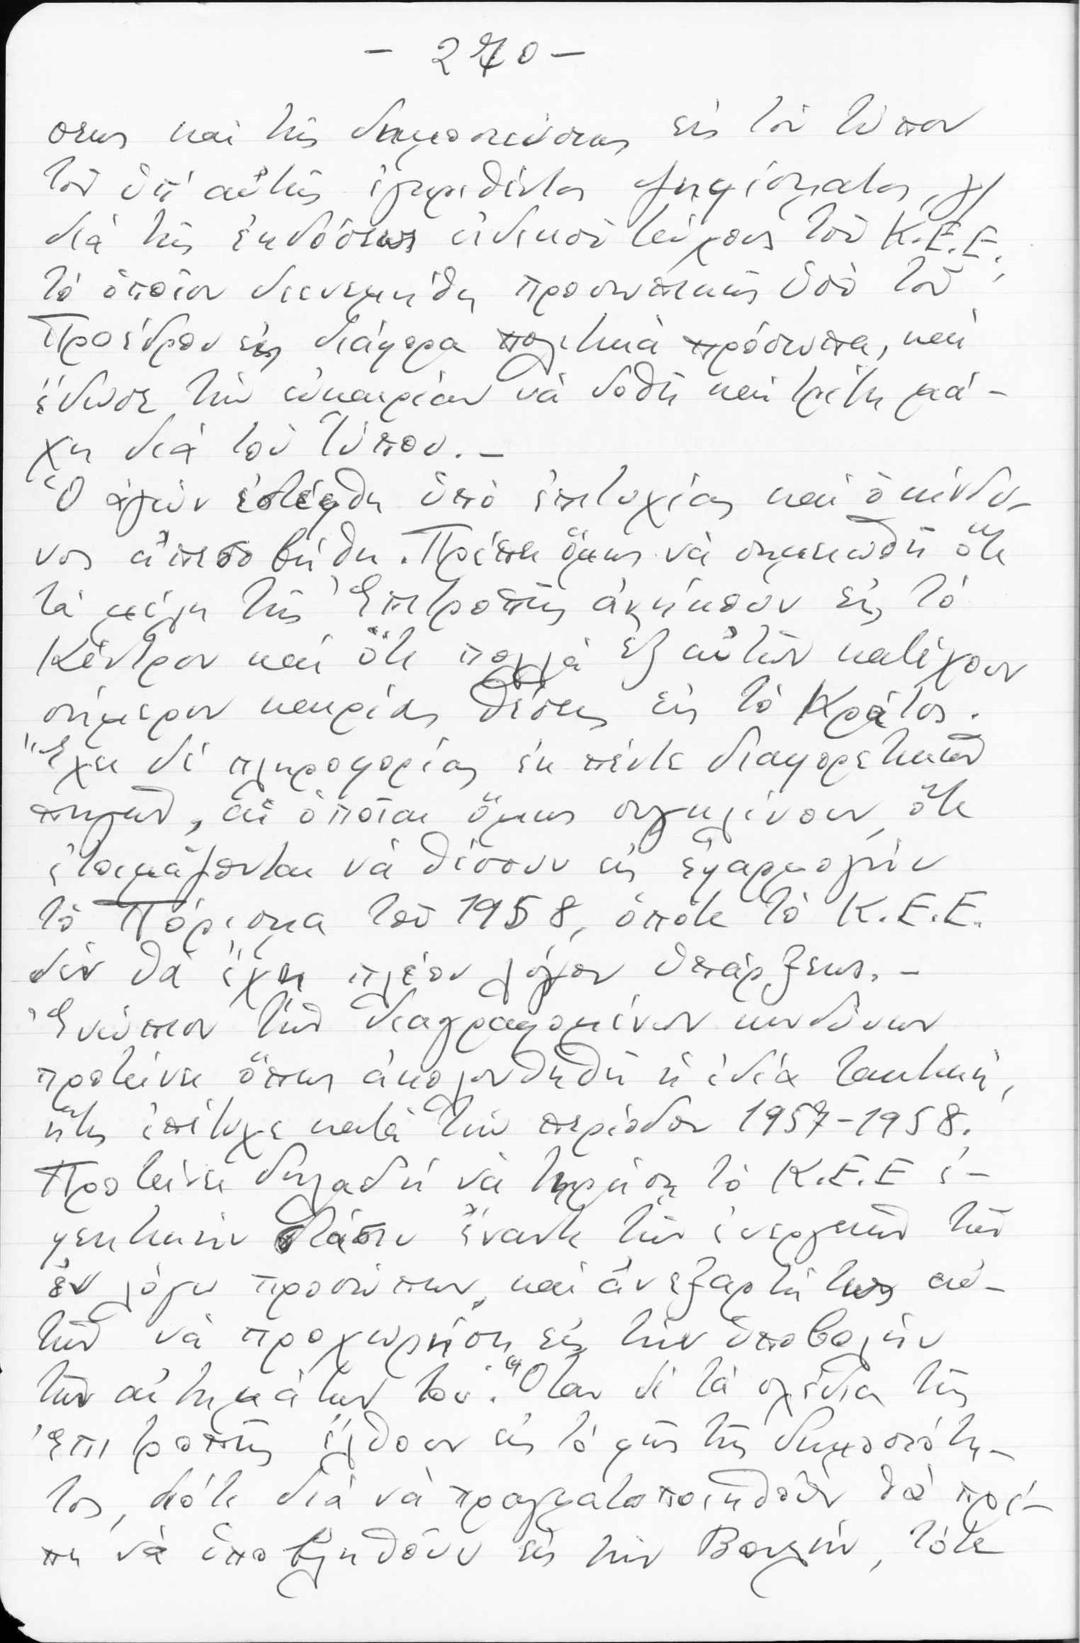 - 270 -
σεως καὶ τῆς δημοσιεύσεως εἰς τὸν τύπον
τοῦ ὑπ' αὐτῆς ἐγκριθέντος ψηφίσματος,
διὰ τῆς ἐκδόσεως εἰδικοῦ τεύχους τοῦ Κ.Ε.Ε.,
τὸ ὁποῖον διενεμήθη προσωπικῶς ὑπὸ τοῦ
Προέδρου εἰς διάφορα πολιτικὰ πρόσωπα, καὶ
ἔδωσε τὴν εὐκαιρίαν νὰ δοθῇ καὶ τρίτη μά-
χη διὰ τοῦ Τύπου.-
Ὁ ἀγὼν ἐστέφθη ὑπὸ ἐπιτυχίας καὶ ὁ κίνδυ-
νος ἀπεσοβήθη. Πρέπει ὅμως νὰ σημειωθῇ ὅτι
τὰ μέλη τῆς Ἐπιτροπῆς ἀνήκουν εἰς τὸ
Κέντρον καὶ ὅτι πολλὰ ἐξ αὐτῶν κατέχουν
σήμερον καιρίας θέσεις εἰς τὸ Κράτος.
Ἔχει δὲ πληροφορίας ἐκ πέντε διαφορετικῶν
πηγῶν, αἱ ὁποῖαι ὅμως συγκλίνουν, ὅτι
ἑτοιμάζονται νὰ θέσουν εἰς ἐφαρμογὴν
τὸ Πόρισμα τοῦ 1958, ὁπότε τὸ Κ.Ε.Ε.
δὲν θὰ ἔχῃ πλέον λόγον ὑπάρξεως.-
Ἐνώπιον τῶν διαγραφομένων κινδύνων
προτείνει ὅπως ἀκολουθηθῇ ἡ ἰδία τακτική,
ἥτις ἐπέτυχε κατὰ τὴν περίοδον 1957-1958.
Προτείνει δηλαδὴ νὰ τηρήσῃ τὸ Κ.Ε.Ε ἐ-
φεκτικὴν στάσιν ἔναντι τῶν ἐνεργειῶν τῶν
ἐν λόγῳ προσώπων, καὶ ἀνεξαρτήτως αὐ-
τῶν νὰ προχωρήσῃ εἰς τὴν ὑποβολὴν
τῶν αἰτημάτων του. Ὅταν δὲ τὰ σχέδια τῆς
Ἐπιτροπῆς ἔλθουν εἰς τὸ φῶς τῆς δημοσιότη-
τος, διότι διὰ νὰ πραγματοποιηθοῦν θὰ πρέ-
πει νὰ ὑποβληθοῦν εἰς τὴν Βουλήν, τότε